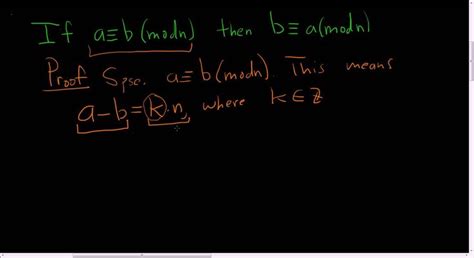 If a≡b (modn) then b≡a(modn)
Proof Spse. a≡b(modn). This means
a-b=k·n, where k∈Z